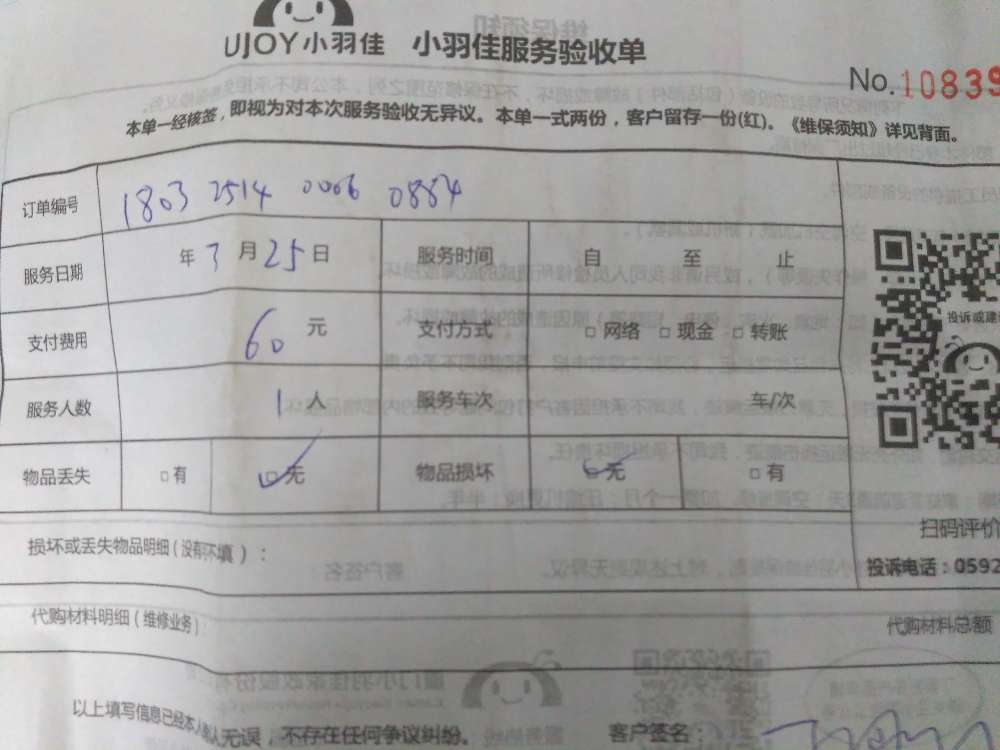 UJOY小羽佳 小羽佳服务验收单
No.10839
本单一经核签，即视为对本次服务验收无异议。本单一式两份，客户留存一份(红)。《维保须知》详见背面。
订单编号 1803 2514 0006 0884
服务日期 年3月25日 服务时间 自 至 止
投诉或建
支付费用 60元 支付方式 □网络 □现金 □转账
服务人数 1人 服务车次 车/次
物品丢失 □有 ☑无 物品损坏 ☑无 □有
扫码评价
损坏或丢失物品明细(没有不填)：
投诉电话：0592
代购材料明细(维修业务)：
代购材料总额
以上填写信息已经本人确认无误，不存在任何争议纠纷。 客户签名：